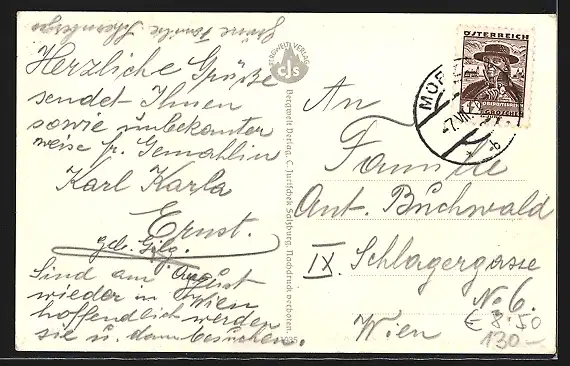 Herzliche Grüße
sendet Ihnen
sowie unbekannter
weise fr. Gemahlin
Karl Karla
Ernst.
geb. Gilg.
Sind am August
wieder in Wien
hoffentlich werden
sie u. dann besuchen.
BERGWELT VERLAG
cJs
Bergwelt Verlag, C. Jurischek Salzburg. Nachdruck verboten.
ÖSTERREICH
OBERÖSTERREICH
GROSCHEN
An
Familie
Ant. Buchwald
IX. Schlagergasse
No 6.
Wien
€ 8.50
130-